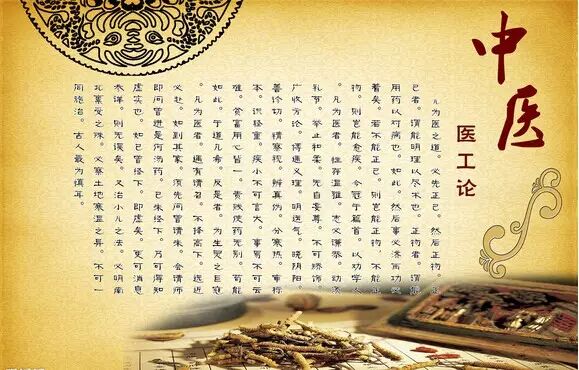 中医
医工论
凡为医之道。必先正己。然后正物。正
己者。谓能明理以尽术也。正物者。谓能
用药以对病也。如此。然后事必济而功必
著矣。若不能正己。则岂能正物。不能正
物。则岂能愈疾。今冠于篇首。以劝学者
凡为医者。性存温雅。志必谦恭。动须
礼节。举止和柔。无自妄尊。不可矫饰。
广收方论。博通义理。明运气。晓阴阳。
善诊切。精察视。辨真伪。分寒热。审标
本。识轻重。疾小不可言大。事易不可云
难。贫富用心皆一。贵贱使药无别。苟能
如此。于道几希。反是者。为生灵之巨寇
凡为医者。遇有请召。不择高下。远近
必赴。如到其家。须先问曾请未。会请师
即问曾进是何汤药。已未经下。乃可得知
虚实也。如已曾经下。即虚矣。更可消息
参详。则无误矣。又治小儿之法。必明南
北禀受之殊。必察土地寒温之异。不可一
同施治。古人最为慎耳。